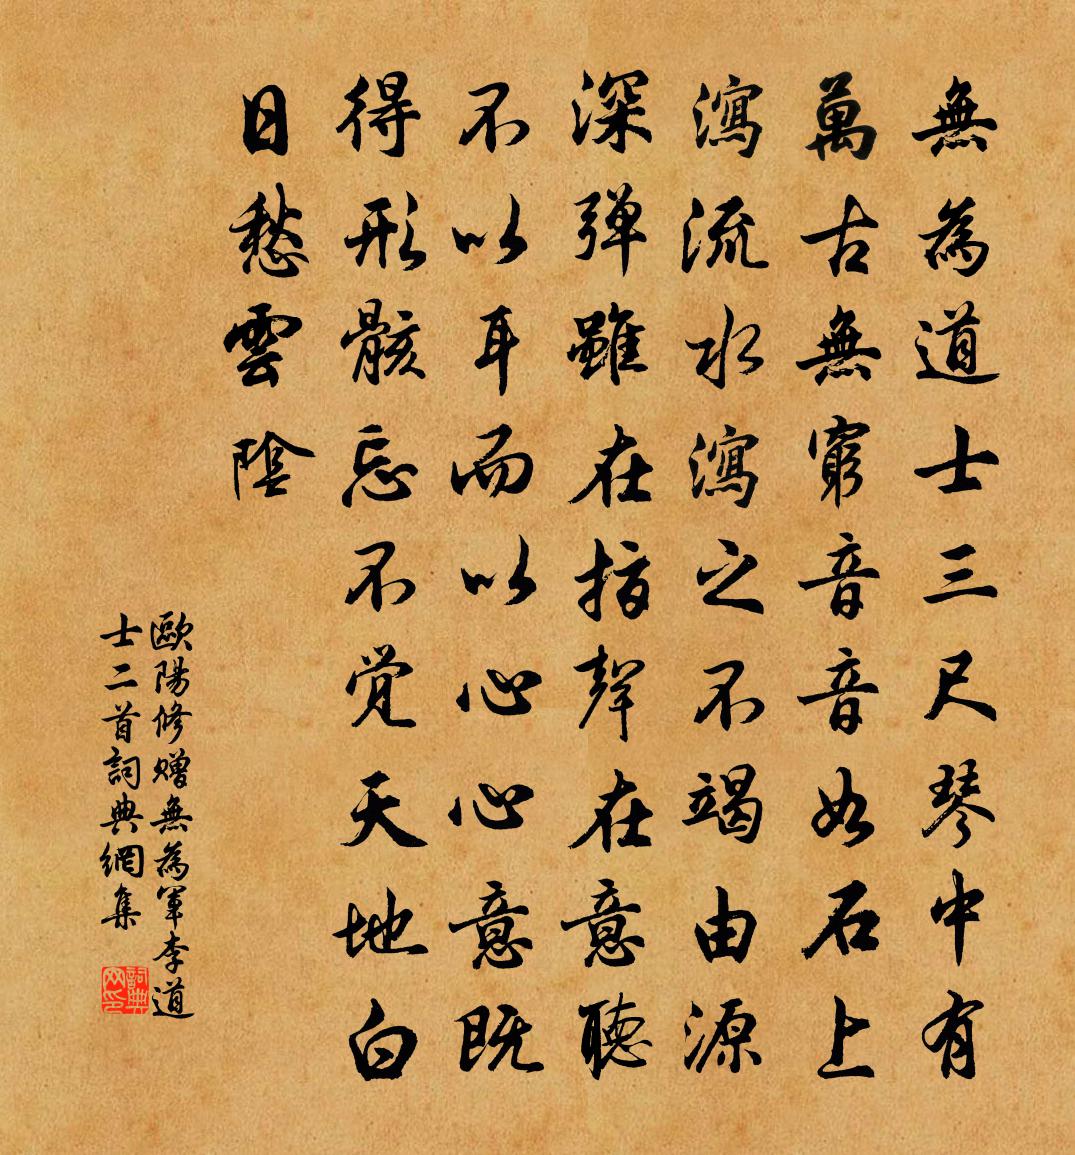 無為道士三尺琴中有
萬古無窮音音如石上
瀉流水瀉之不竭由源
深弹雖在指聲在意聽
不以耳而以心心意既
得形骸忘不覚天地白
日愁雲陰
歐陽修赠無為軍李道
士二首詞典網集
詞典网印